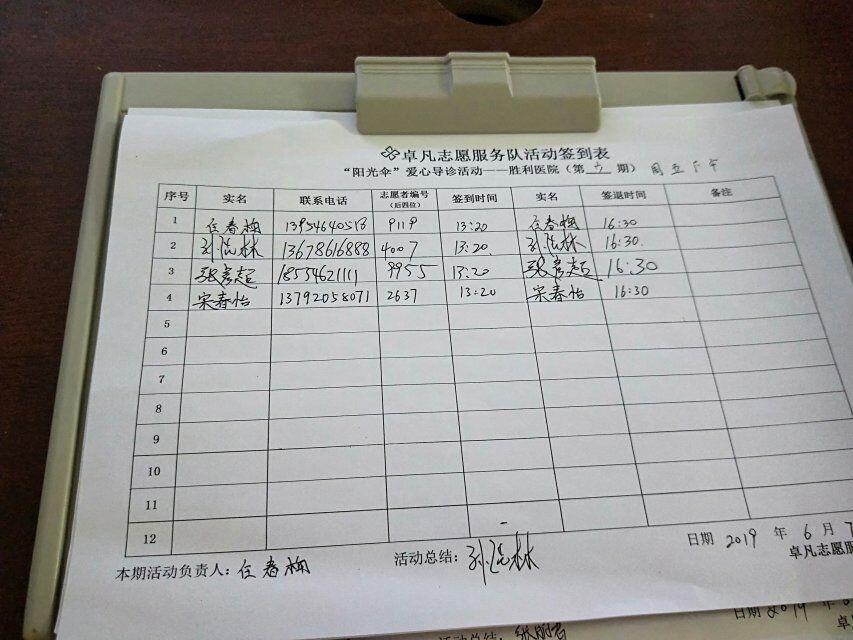 卓凡志愿服务队活动签到表
“阳光伞”爱心导诊活动——胜利医院(第 立 期) 周五下午
序号 实名 联系电话 志愿者编号(后四位) 签到时间 实名 签退时间 备注
1 任春梅 13954640513 9119 13:20 任春梅 16:30
2 林 13678616888 4007 13:20. 林 16:30.
3 张彦超 18554621111 9955 13:20 张彦超 16:30
4 宋春怡 13792058071 2637 13:20 宋春怡 16:30
5
6
7
8
9
10
11
12
日期 2019 年 6 月 7
本期活动负责人:任春梅 活动总结: 林 卓凡志愿服
日期 2019 年
活动总结: 卓